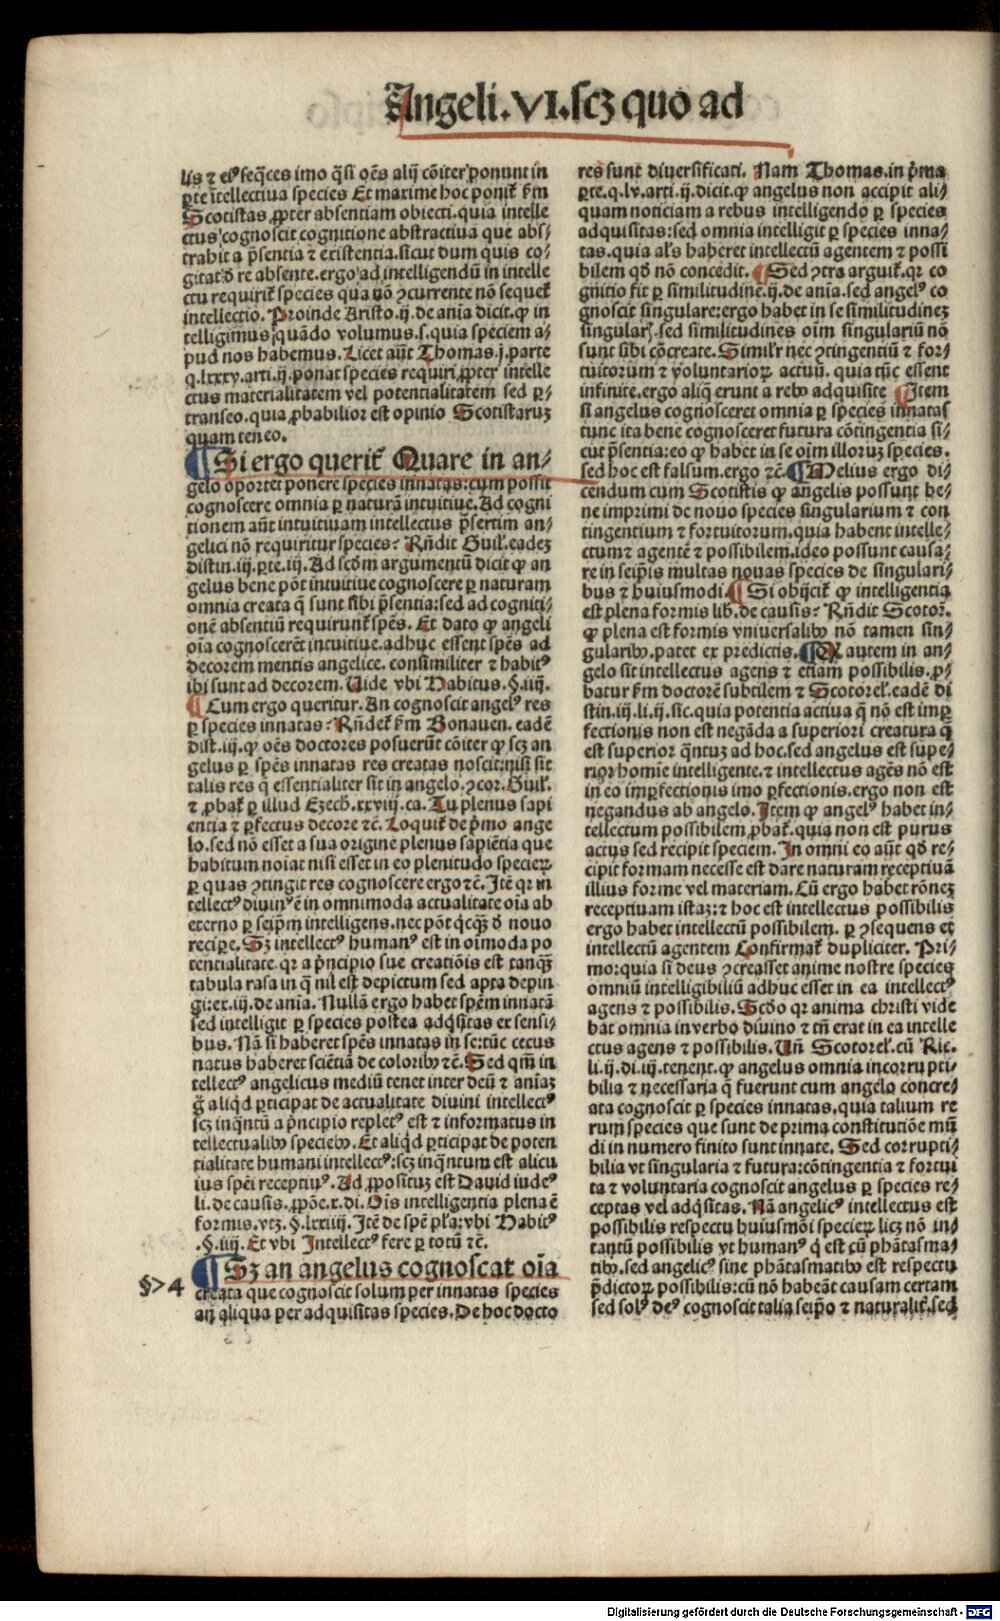 Angeli.VI.scꝫ quo ad
lis ⁊ eiꝰ seq̄ces imo q̄si oēs alij cōiter ponunt in
ꝑte ītellectiua species Et maxime hoc ponit̄ ẜm
Scotistas ꝓpter absentiam obiecti.quia intelle
ctus cognoscit cognitione abstractiua que abs⸗
trahit a p̄sentia ⁊ existentia.sicut dum quis co⸗
gitat d̄ re absente.ergo ad intelligendū in intelle
ctu requirit̄ species qua nō ꝯcurrente nō sequet̄
intellectio. Proinde Aristo.ij.de aīa dicit.ꝙ in
telligimus quādo volumus.s.quia speciem a⸗
pud nos habemus. Licet aūt Thomas.j.parte
q.lxxxv.arti.ij.ponat species requiri ꝓpter intelle
ctus materialitatem vel potentialitatem sed ꝑ⸗
transeo.quia ꝓbabilior est opinio Scotistaruꝫ
quam teneo.
¶ Si ergo querit̄ Quare in an⸗
gelo oportet ponere species innatas:cum possit
cognoscere omnia ꝑ naturā intuitiue. Ad cogni
tionem aūt intuitiuam intellectus p̄sertim an⸗
gelici nō requiritur species? Rn̄dit Guil̄.eadeꝫ
distin.iij.ꝑte.iij. Ad scd̄m argumentū dicit ꝙ an
gelus bene pōt intuitiue cognoscere ꝑ naturam
omnia creata q̄ sunt sibi p̄sentia:sed ad cogniti⸗
onē absentiū requirunt̄ spēs. Et dato ꝙ angeli
oīa cognoscerēt intuitiue.adhuc essent spēs ad
decorem mentis angelice. consimiliter ⁊ habitꝰ
ibi sunt ad decorem. Uide vbi Habitus.§.iiij.
¶ Cum ergo queritur. An cognoscit angelꝰ res
ꝑ species innatas? Rn̄det̄ ẜm Bonauen. eadē
dist.iij.ꝙ oēs doctores posuerūt cōiter ꝙ scꝫ an
gelus ꝑ spēs innatas res creatas noscit:nisi sit
talis res q̄ essentialiter sit in angelo.ꝯcor. Guil̄.
⁊ ꝓbat̄ ꝑ illud Ezech.xxviij.ca. Tu plenus sapi
entia ⁊ ꝑfectus decore ⁊c̄. Loquit̄ de p̄mo ange
lo.sed nō esset a sua origine plenus sapiētia que
habitum noīat nisi esset in eo plenitudo specieꝝ
ꝑ quas ꝯtingit res cognoscere ergo ⁊c̄. Itē qꝛ in
tellectꝰ diuinꝰ ē in omnimoda actualitate oīa ab
eterno ꝑ seip̄m intelligens.nec pōt qͥcqͣꝫ d̄ nouo
recipe. Sꝫ intellectꝰ humanꝰ est in oīmoda po
tentialitate.qꝛ a p̄ncipio sue creatiōis est tanqͣꝫ
tabula rasa in q̄ nil est depictum sed apta depin
gi:et.iij.de anīa. Nullā ergo habet spēm innatā
sed intelligit ꝑ species postea adqͥsitas ex sensi⸗
bus. Nā si haberet spēs innatas in se:tūc cecus
natus haberet sciētiā de coloribꝰ ⁊c̄. Sed qm̄ in
tellectꝰ angelicus mediū tenet inter deū ⁊ aīaꝫ
g̊ aliqͥd ꝑticipat de actualitate diuini intellectꝰ
scꝫ inqͣntū a p̄ncipio repletꝰ est ⁊ informatus in
tellectualibꝰ speciebꝰ. Et aliqͥd ꝑticipat de poten
tialitate humani intellectꝰ:scꝫ inqͣntum est alicu
ius spēi receptiuꝰ. Ad ꝓpositum est Dauid iudeꝰ
li. de causis.ꝓpōe.x.di. Oīs intelligentia plena ē
formis.vtꝫ. §.lxxiiij. Itē de spē pl̄a:vbi Habitꝰ
.§.iiij. Et vbi Intellectꝰ fere ꝑ totū ⁊c̄.
§>4
¶ Sꝫ an angelus cognoscat oīa
creata que cognoscit solum per innatas species
an̄ aliqua per adquisitas species. De hoc docto
res sunt diuersificati. Nam Thomas.in p̄ma
ꝑte.q.lv.arti.ij.dicit.ꝙ angelus non accipit ali⸗
quam noticiam a rebus intelligendo ꝑ species
adquisitas:sed omnia intelligit ꝑ species inna⸗
tas.quia al̄s haberet intellectū agentem ⁊ possi
bilem qd̄ nō concedit. ¶ Sed ꝯtra arguit̄.qꝛ co
gnitio fit ꝑ similitudinē.ij.de anīa.sed angelꝰ co
gnoscit singulare:ergo habet in se similitudineꝫ
singularꝭ.sed similitudines oīm singulariū nō
sunt sibi cōcreate. Simil̄r nec ꝯtingentiū ⁊ for⸗
tuitorum ⁊ voluntarioꝝ actuū. quia tūc essent
infinite.ergo aliq̄ erunt a rebꝰ adquisite ¶ Item
si angelus cognosceret omnia ꝑ species innatas
tunc ita bene cognosceret futura cōtingentia si⸗
cut p̄sentia:eo ꝙ habet in se oīm illoruꝫ species.
sed hoc est falsum.ergo ⁊c̄. ¶ Melius ergo di⸗
cendum cum Scotistis ꝙ angelis possunt be⸗
ne imprimi de nouo species singularium ⁊ con
tingentium ⁊ fortuitorum.quia habent intelle⸗
ctum ⁊ agentē ⁊ possibilem.ideo possunt causa⸗
re in seip̄is multas nouas species de singulari⸗
bus ⁊ huiusmodi. ¶ Si obijcit̄ ꝙ intelligentia
est plena formis lib̄.de causis? Rn̄dit Scotor̄.
ꝙ plena est formis vniuersalibꝰ nō tamen sin⸗
gularibꝰ.patet ex predictis. ¶ Q autem in an⸗
gelo sit intellectus agens ⁊ etiam possibilis.ꝓ⸗
batur ẜm doctorē subtilem ⁊ Scotorel̄.eadē di
stin.iij.li.ij.sic.quia potentia actiua q̄ nō est imꝑ
fectionis non est negāda a superiori creatura q̄
est superior qͣntuꝫ ad hoc.sed angelus est supe⸗
rior homīe intelligente.⁊ intellectus agēs nō est
in eo imꝑfectionis imo ꝑfectionis.ergo non est
negandus ab angelo. Item ꝙ angelꝰ habet in⸗
tellectum possibilem ꝓbat̄.quia non est purus
actus sed recipit speciem. In omni eo aūt qd̄ re⸗
cipit formam necesse est dare naturam receptiuā
illius forme vel materiam. Cū ergo habet rōneꝫ
receptiuam istaꝫ:⁊ hoc est intellectus possibilis
ergo habet intellectū possibilem. ꝑ ꝯsequens et
intellectū agentem Confirmat̄ dupliciter. Pri⸗
mo:quia si deus ꝯcreasset anime nostre species
omniū intelligibiliū adhuc esset in ea intellectꝰ
agens ⁊ possibilis. Scd̄o qꝛ anima christi vide
bat omnia in verbo diuino ⁊ tn̄ erat in ea intelle
ctus agens ⁊ possibilis. Un̄ Scotorel̄.cū Ric.
li.ij.di.iij.tenent.ꝙ angelus omnia incorrupti⸗
bilia ⁊ necessaria q̄ fuerunt cum angelo concre⸗
ata cognoscit ꝑ species innatas.quia talium re
rum species que sunt de prima constitutiōe mū
di in numero finito sunt innate. Sed corrupti⸗
bilia vt singularia ⁊ futura:cōtingentia ⁊ fortui
ta ⁊ voluntaria cognoscit angelus ꝑ species re⸗
ceptas vel adqͥsitas. Nā angelicꝰ intellectus est
possibilis respectu huiusmōi specieꝝ licꝫ nō in⸗
tantū possibilis vt humanꝰ qͥ est cū phātasma⸗
tibꝰ.sed angelicꝰ sine phātasmatibꝰ est respectu
p̄dictoꝝ possibilis:cū nō habeāt causam certam
sed solꝰ deꝰ cognoscit talia seip̄o ⁊ naturalit̄.sed
Digitalisierung gefördert durch die Deutsche Forschungsgemeinschaft - DFG